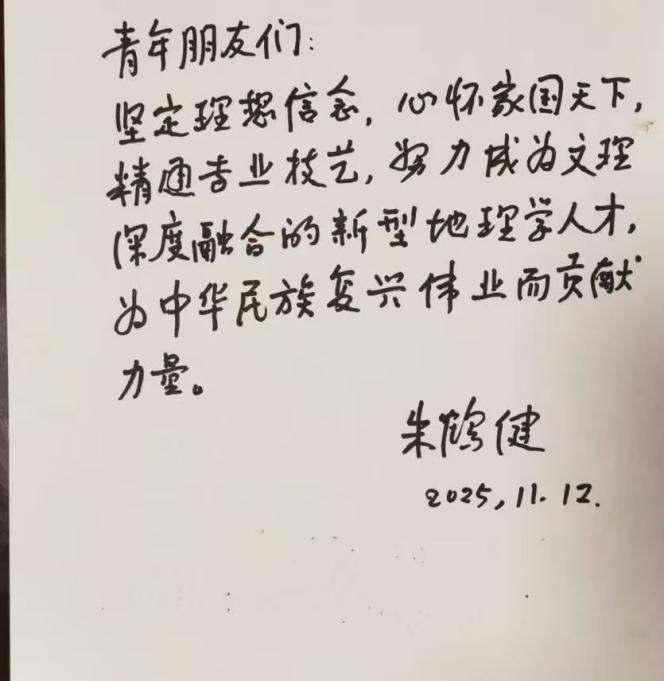 青年朋友们:
坚定理想信念,心怀家国天下,
精通专业技艺,努力成为文理
深度融合的新型地理学人才,
为中华民族复兴伟业而贡献
力量。
朱鹤健
2025,11.12.